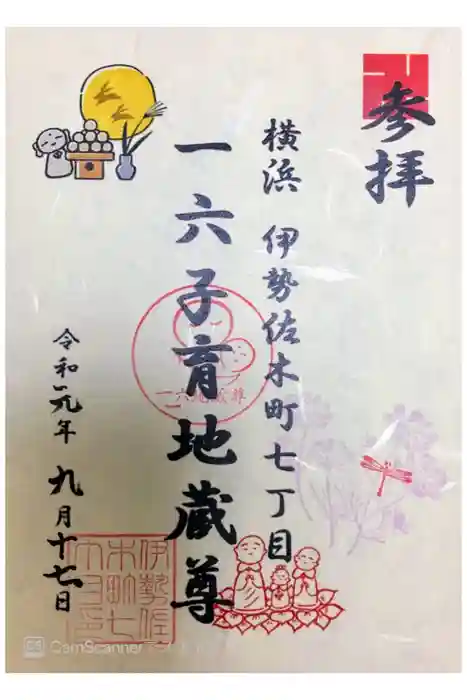 参拝
横浜 伊勢佐木町七丁目
一六子育地蔵尊
令和元年 九月十七日
一六地蔵尊
伊勢佐
木町七
CS CamScanner